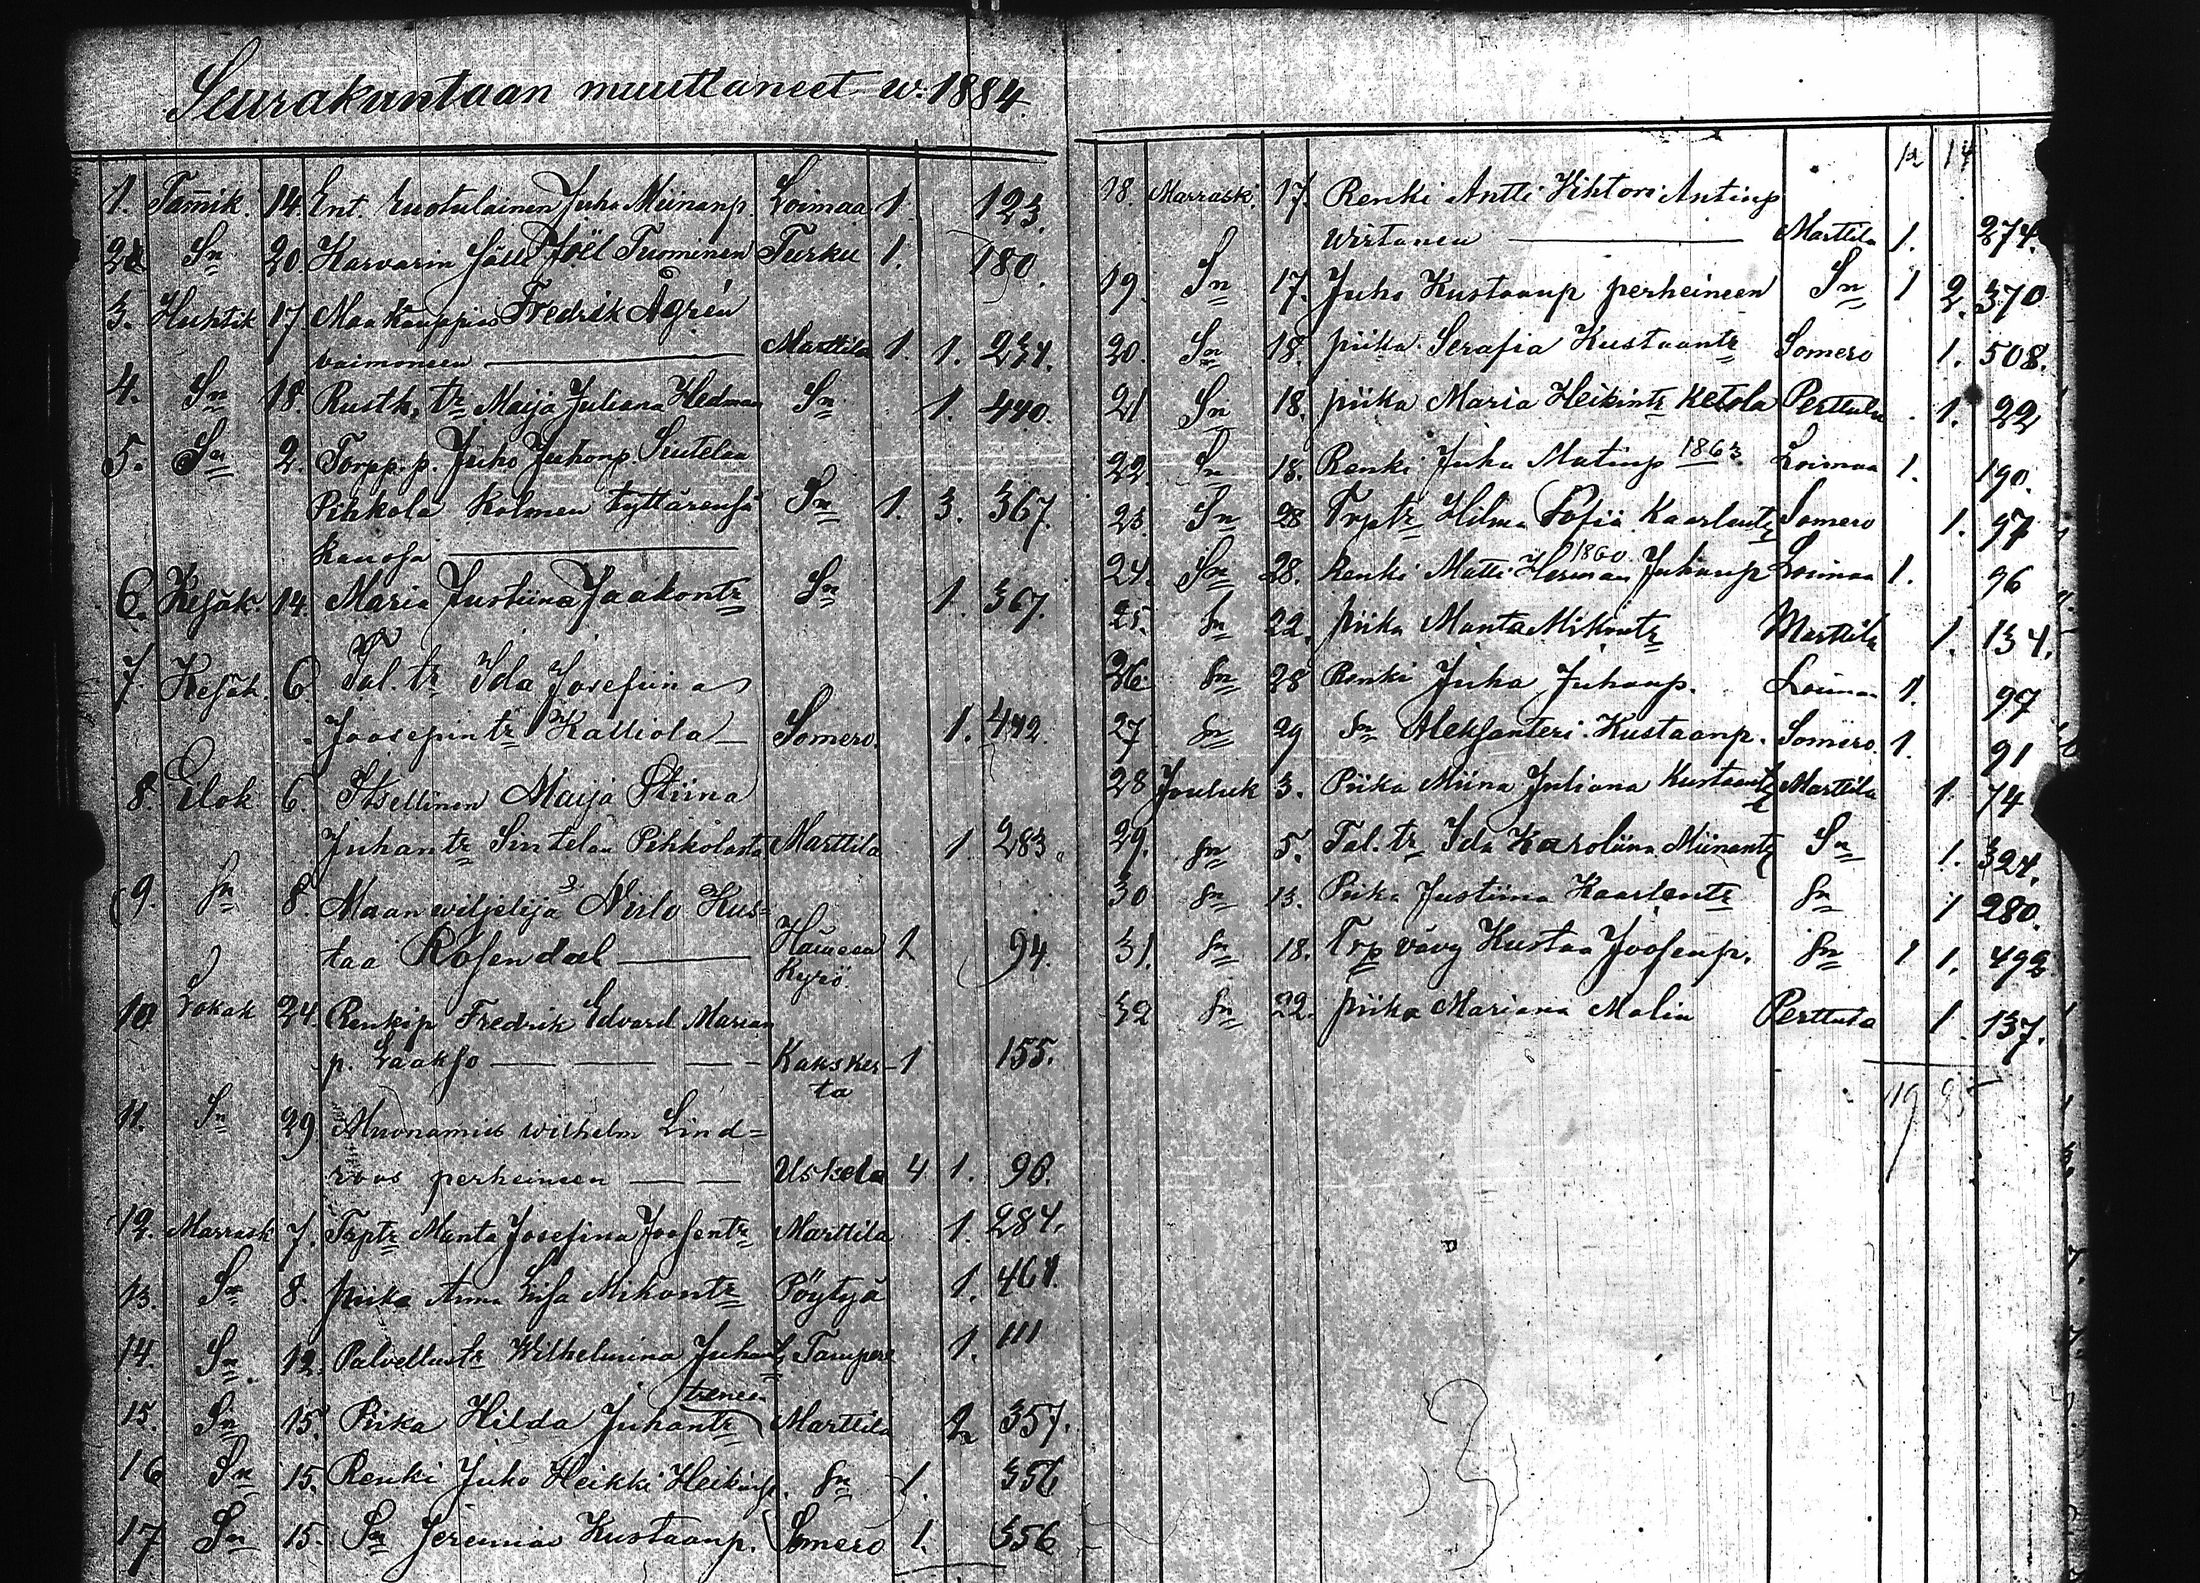 Seurakuntaan muuttaneet w. 1884
1. Tamik. 14. Ent. Juho Miinanp. Loimaa 1. 123.
2 Sn 20 Karvarin Sälli Joël Tuominen Turku 1. 180.
3. Huhtik 17 Maakauppias Fredrik Agrén
vaimoneen Marttila 1. 1. 234.
4. Sn 18. Rusth. tr Maija Juliana Hedman Sn 1. 440.
5. Sn 2. Torpp. p. Juho Juhonp. Sintelan
Pihkola kolmen tyttärensä Sn 1. 3. 367.
kansa
6. Kesäk. 14. Maria Justiina Jaakontr Sn 1. 367.
7. Kesäk. 6 Tal. tr Ida Josefiina
Joosepintr Kalliola Somero. 1. 442.
8. Elok 6. Itsellinen Maija Stiina
Juhantr Sintelan Pihkolasta Marttila 1. 283.
9. Sn 8. Maanwiljelijä Niilo Kus-
taa Rosendal Hämeen 1 94.
Kyrö.
10 Lokak 24. Renkip Fredrik Edvard Marian
p. Laakso Kaksker- 1 155.
ta
11. Sn 29 Muonamies Wilhelm Lind=
roos perheineen Uskela 4 1. 98.
12. Marrask 7. Trptr Manta Josefina Joosentr Marttila 1. 284.
13. Sn 8. piika Anna Liisa Mikontr Pöytyä 1. 461.
14. Sn 12. Palvellustr Wilhelmina Juhantr Tampere 1. 111
15. Sn 15. Piika Hilda Juhantr Marttila 2 357.
16 Sn 15. Renki Juho Heikki Heikinp. Sn 1. 356
17 Sn 15. Sn Jeremias Kustaanp. Somero 1. 356
12 14
18. Marrask. 17. Renki Antti Vihtori Antinp
Wirtanen Marttila 1. 274.
19. Sn 17. Juho Kustaanp perheineen Sn 1 2. 370
20. Sn 18. piika Serafia Kustaantr Somero 1. 508.
21 Sn 18. piika Maria Heikintr Ketola Perttula 1. 22
22 Sn 18. Renki Juha Matinp 1863 Loimaa 1. 190.
23 Sn 28 Trptr Hilma Sofia Kaarlontr Somero 1. 97
24. Sn 28. Renki Matti Herman 1860 Juhanp Loimaa 1. 96
25. Sn 22. piika Manta Mikontr Marttila 1. 134.
26. Sn 28 Renki Juha Juhanp. Loimaa 1. 97
27 Sn 29 Sn Aleksanteri Kustaanp. Somero. 1. 91
28 Jouluk 3. Piika Miina Juliana Kustaantr Marttila 1. 74
29. Sn 5. Tal. tr Ida Karoliina Miinantr Sn 1. 324.
30 Sn 13. Piika Justiina Kaarlentr Sn 1 280.
31. Sn 18. Trp vävy Kustaa Joosenp. Sn 1 1. 492
32 Sn 22. piika Mariana Malin Perttula 1. 137.
19 25